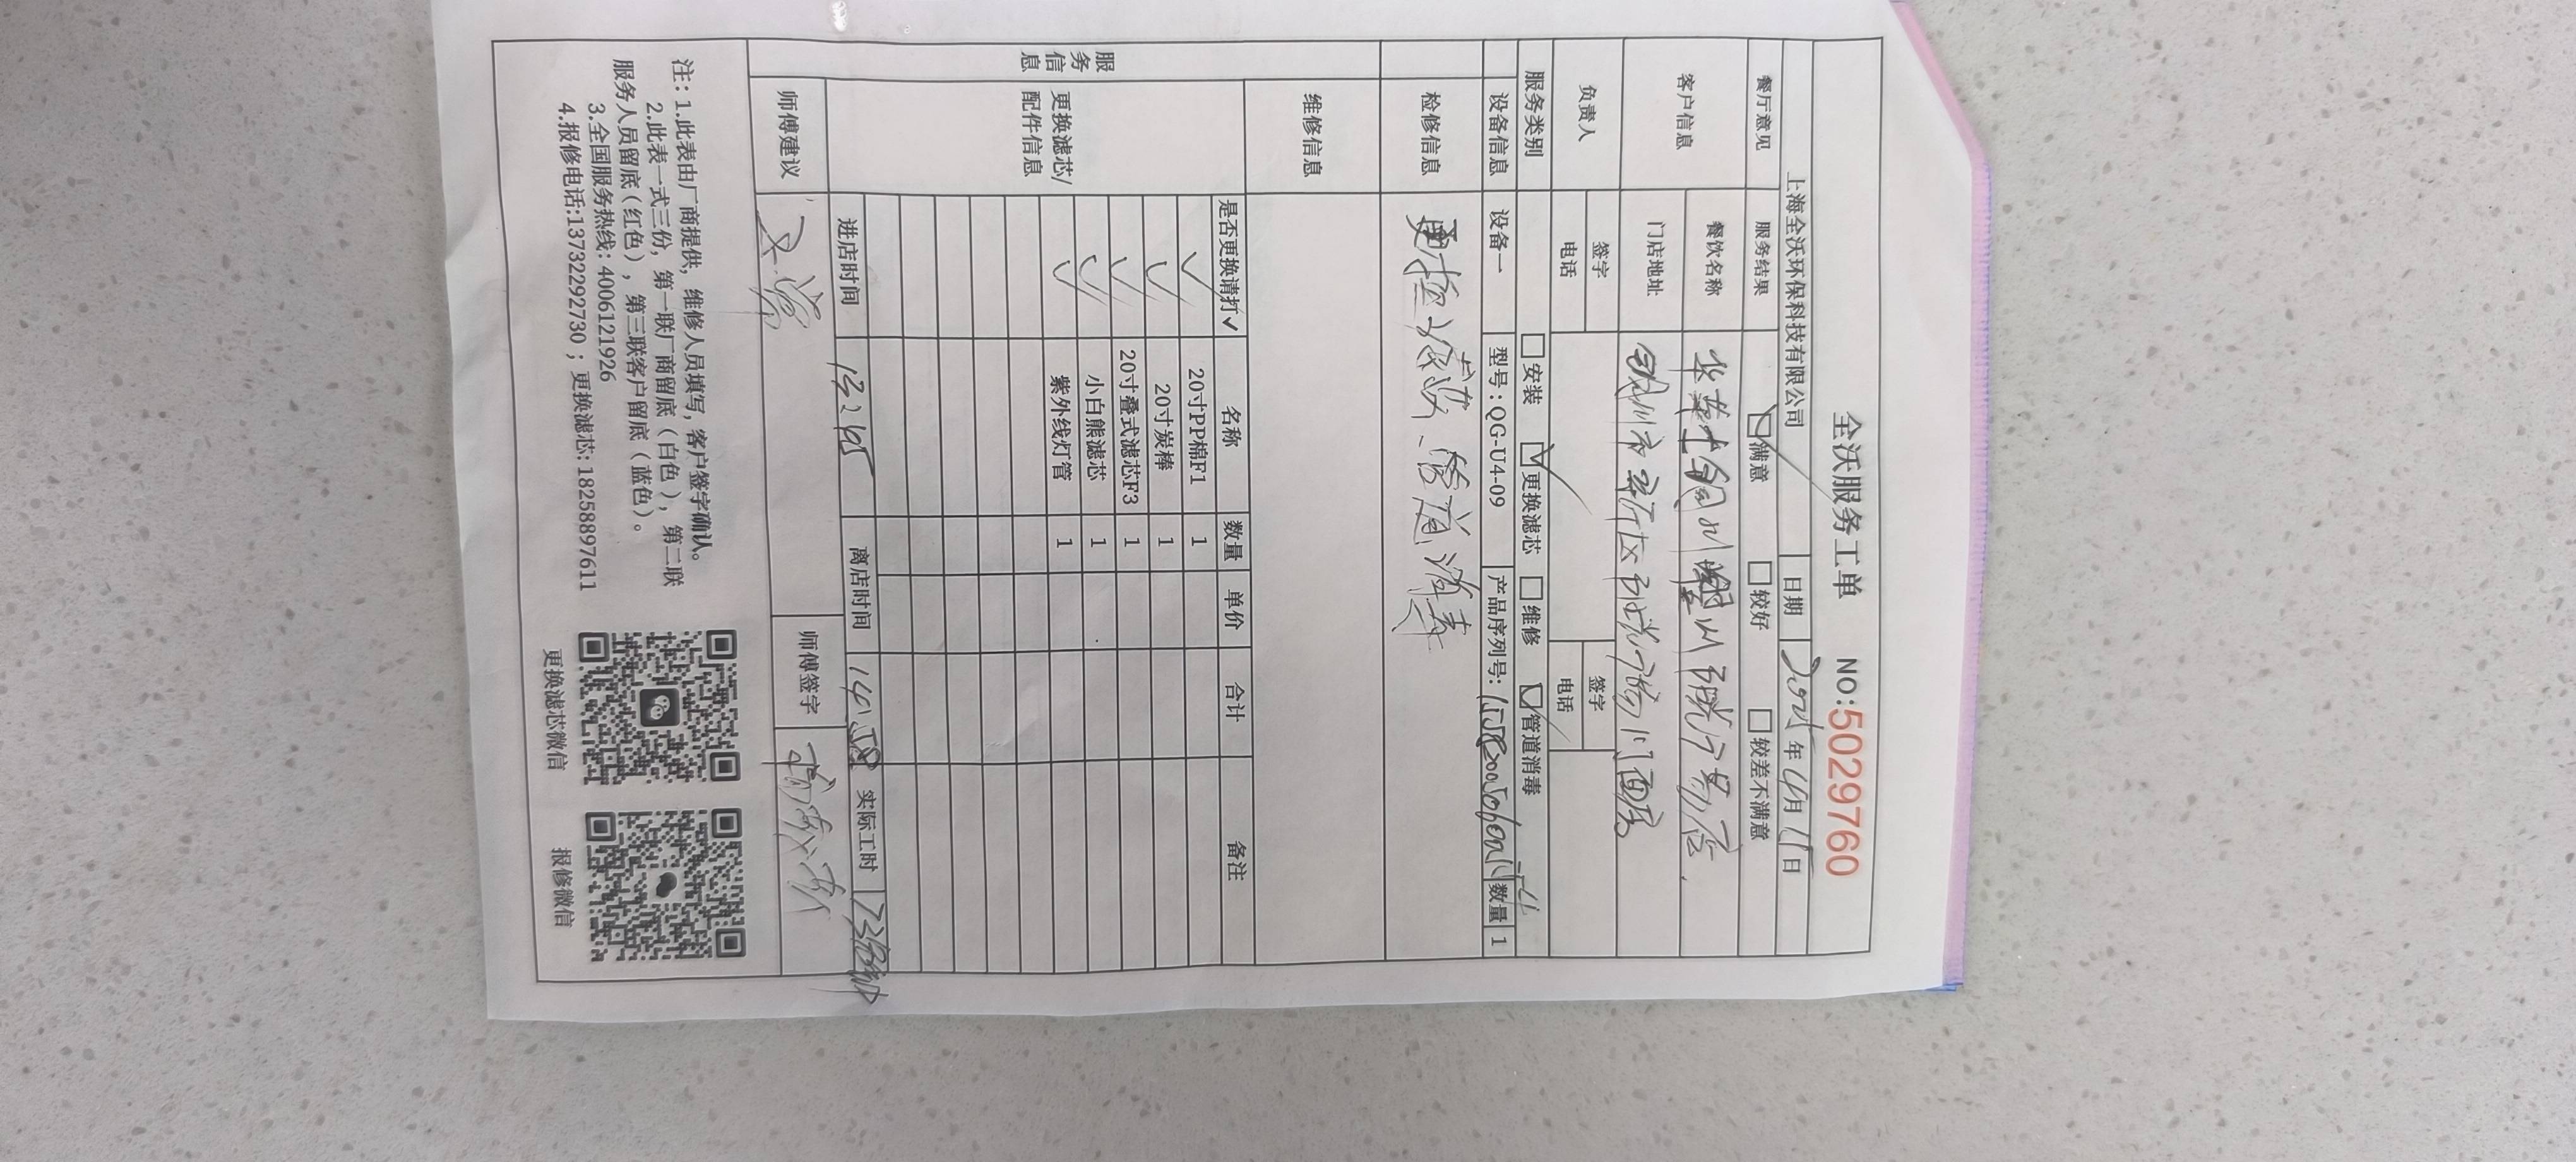 全沃服务工单 NO:5029760
上海全沃环保科技有限公司 日期 年4月11日
餐厅意见 服务结果 ☑满意 □较好 □较差不满意
客户信息 餐饮名称
门店地址
负责人 签字 签字
电话 电话
服务类别 □安装 ☑更换滤芯 □维修 ☑管道消毒
设备信息 设备一 型号:QG-U4-09 产品序列号: 数量 1
服务信息
检修信息 更换滤芯、管道消毒
维修信息
更换滤芯/配件信息
是否更换请打✓ 名称 数量 单价 合计 备注
✓ 20寸PP棉F1 1
✓ 20寸炭棒 1
✓ 20寸叠式滤芯F3 1
✓ 小白熊滤芯 1
✓ 紫外线灯管 1
进店时间 13:45 离店时间 14:58 实际工时 73分钟
师傅建议 正常 师傅签字
注:1.此表由厂商提供,维修人员填写,客户签字确认。
2.此表一式三份,第一联厂商留底(白色),第二联
服务人员留底(红色),第三联客户留底(蓝色)。
3.全国服务热线:4006121926
4.报修电话:13732292730;更换滤芯:18258897611
更换滤芯微信 报修微信